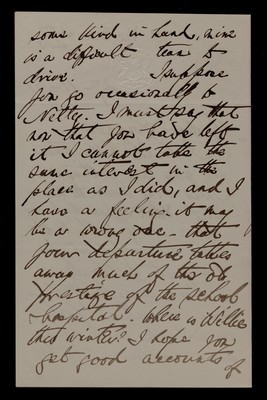 some kind in hand, mine
is a difficult team to
drive. I suppose
you go occasionally to
Netley. I must say that
now that you have left
it I cannot take the
same interest in the
place as I did, and I
have a feeling it may
be a wrong one - that
your departure takes
away much of the old
prestige of the school
& hospital. Where is Willie
this winter? I hope you
get good accounts of